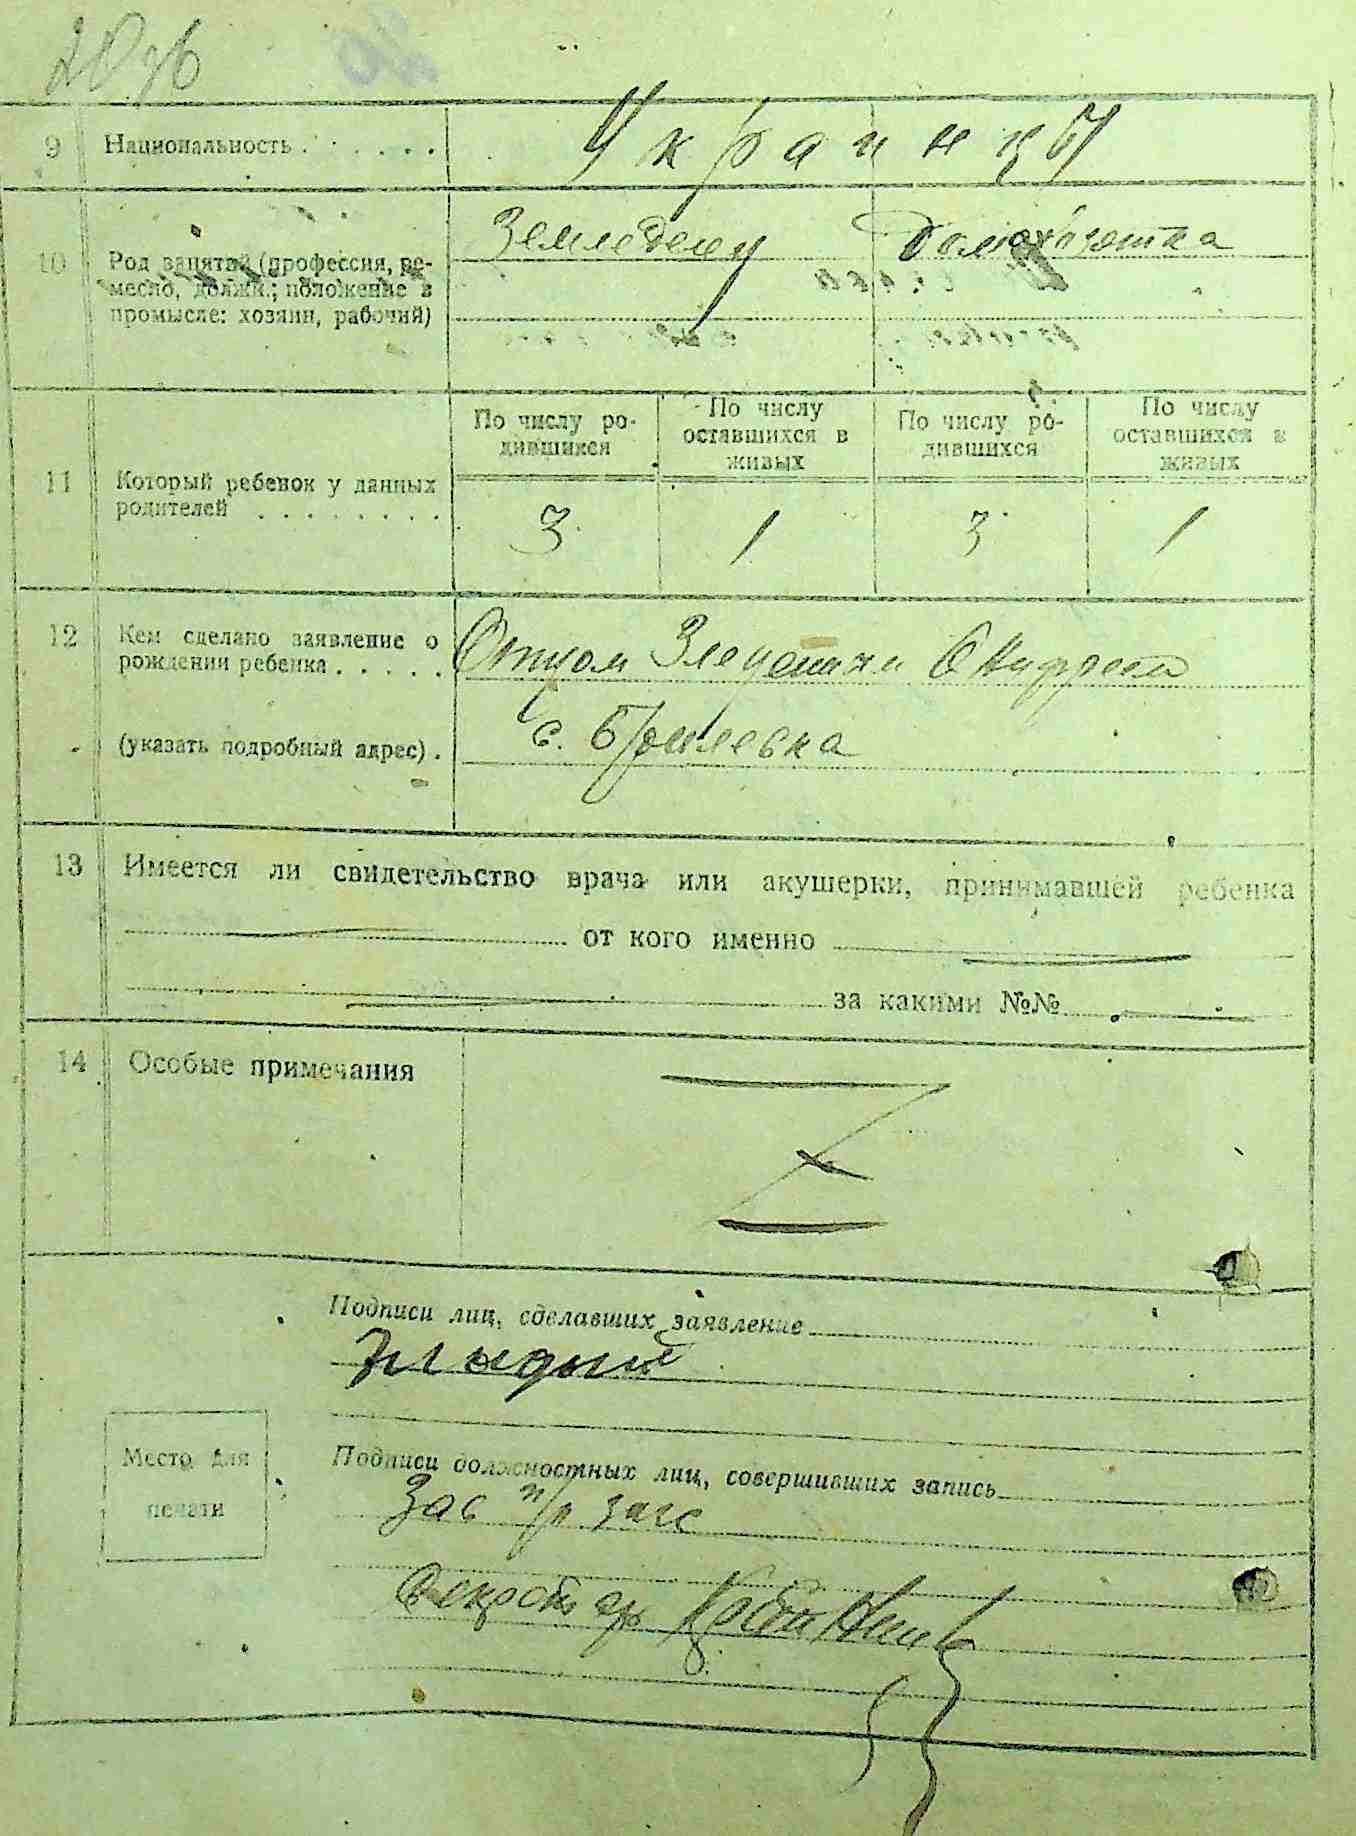 9 Национальность . . . . . . Украинцы
10 Род занятий (профессия, ре-
месло, должн.; положение в
промысле: хозяин, рабочий)
Земледелец Домохозяйка
11 Который ребенок у данных
родителей . . . . . . . .
По числу ро-
дившихся
По числу
оставшихся в
живых
По числу ро-
дившихся
По числу
оставшихся в
живых
3 1 3 1
12 Кем сделано заявление о
рождении ребенка . . . . .
(указать подробный адрес) .
Отцом
с.
13 Имеется ли свидетельство врача или акушерки, принимавшей ребенка
от кого именно
за какими №№
14 Особые примечания
Подписи лиц, сделавших заявление
Место для
печати
Подписи должностных лиц, совершивших запись
Зав п/р загс